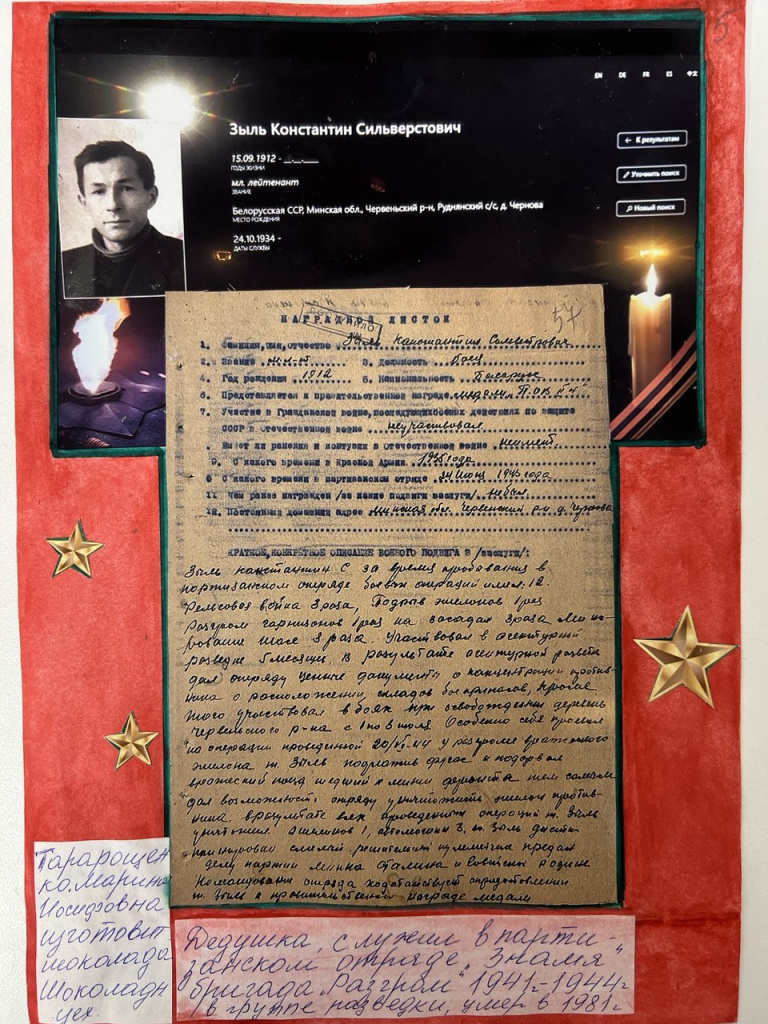 5
EN DE FR ES 中文
Зыль Константин Сильверстович
15.09.1912 - __.__.____
ГОДЫ ЖИЗНИ
мл. лейтенант
ЗВАНИЕ
Белорусская ССР, Минская обл., Червеньский р-н, Руднянский с/с, д. Чернова
МЕСТО РОЖДЕНИЯ
24.10.1934 -
ДАТЫ СЛУЖБЫ
К результатам
Уточнить поиск
Новый поиск
57
НАГРАДНОЙ ЛИСТОК
1. Фамилия, имя, отчество Зыль Константин Сильвестрович
2. Звание мл. л-т 3. Должность боец
4. Год рождения 1912 5. Национальность Беларус
6. Представляется к правительственной награде медали "П.О.В."
7. Участие в Гражданской войне, последующих боевых действиях по защите
СССР и отечественной войне неучаствовал
Имеет ли ранения и контузии в отечественной войне неимеет.
9. С какого времени в Красной Армии 1935 года
С какого времени в партизанском отряде 1943 года
11. Чем ранее награжден /за какие подвиги заслуги/ небыл
12. Постоянный домашний адрес Минская обл. Червенский р-н д. Чернова
КРАТКОЕ, КОНКРЕТНОЕ ОПИСАНИЕ БОЕВОГО ПОДВИГА и /заслуги/:
Зыль Константин С за время пребывания в
партизанском отряде боевых операций имел 12.
Рельсовая война 3 раза, Подрыв эшелонов 1 раз
Разгром гарнизонов 1 раз на засадах 3 раза Мини-
рование шоссе 3 раза. Участвовал в агентурной
разведке 5 месяцев. В результате агентурной разведки
дал отряду ценные документы о концентрации против-
ника о расположении складов боеприпасов, кроме
этого участвовал в боях при освобождении деревень
Червенского р-на с 1 по 8 июля. Особенно себя проявил
на операции проведенной у разгроме вражеского
эшелона т. Зыль подложив фугас и подорвал
вражеский поезд идший к линии фронта тем самым
дал возможность отряду уничтожить эшелон против-
ника. В результате всех проведенных операций т. Зыль
уничтожил эшелонов 1, автомашин 3, т. Зыль
смелый решительный предан
делу партии Ленина Сталина и Советской Родине
Командование отряда ходатайствует о
т. Зыль к правительственной награде медали
Тарарощен
ко. Марина
Иосифовна
изготовит
шоколада
Шоколадн
цех.
Дедушка, служил в парти-
занском отряде „Знамя“
бригада „Разгром“ 1941-1944г
в группе разведки, умер в 1981г